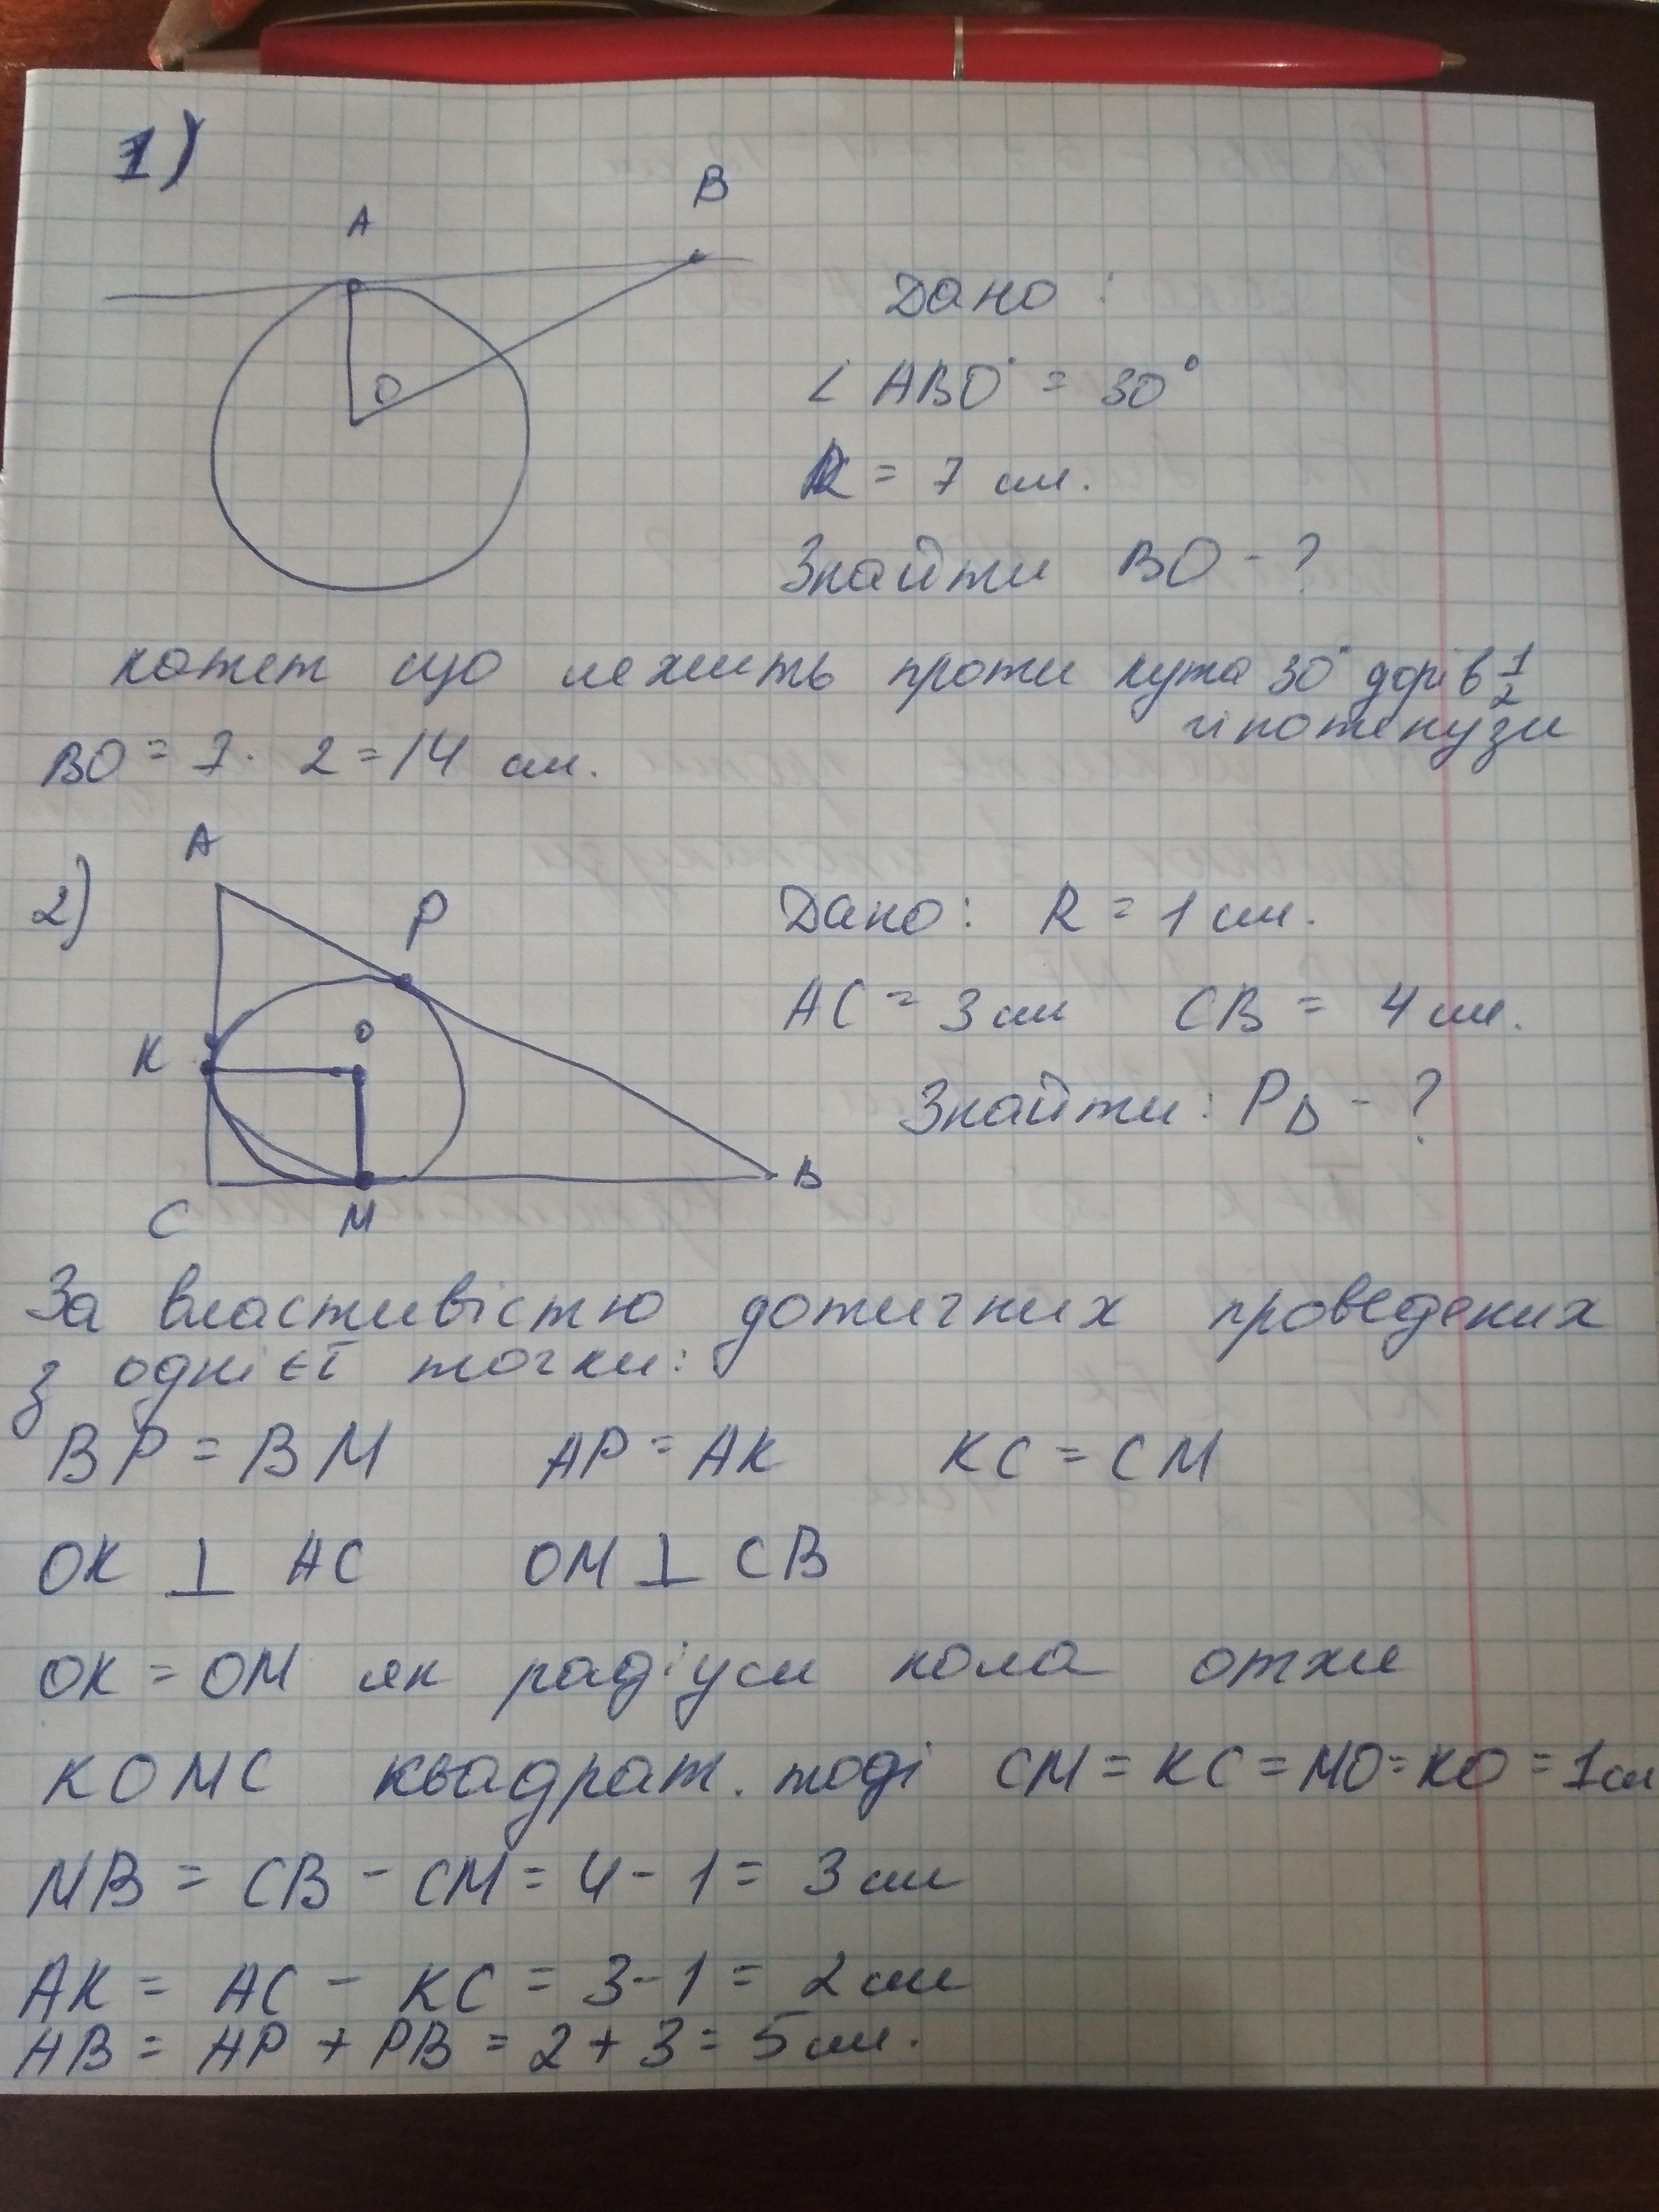 1)
A
B
O
Дано:
∠ ABO = 30°
R = 7 см.
Знайти BO - ?
катет що лежить проти кута 30° дорів 1/2
гіпотенузи
BO = 7 · 2 = 14 см.
2)
A
P
O
K
C
M
B
Дано: R = 1 см.
AC = 3 см CB = 4 см.
Знайти: P∆ - ?
За властивістю дотичних проведених
з однієї точки:
BP = BM AP = AK KC = CM
OK ⊥ AC OM ⊥ CB
OK = OM як радіуси кола отже
KOMC квадрат. тоді CM = KC = MO = KO = 1см
MB = CB - CM = 4 - 1 = 3 см
AK = AC - KC = 3 - 1 = 2 см
AB = AP + PB = 2 + 3 = 5 см.